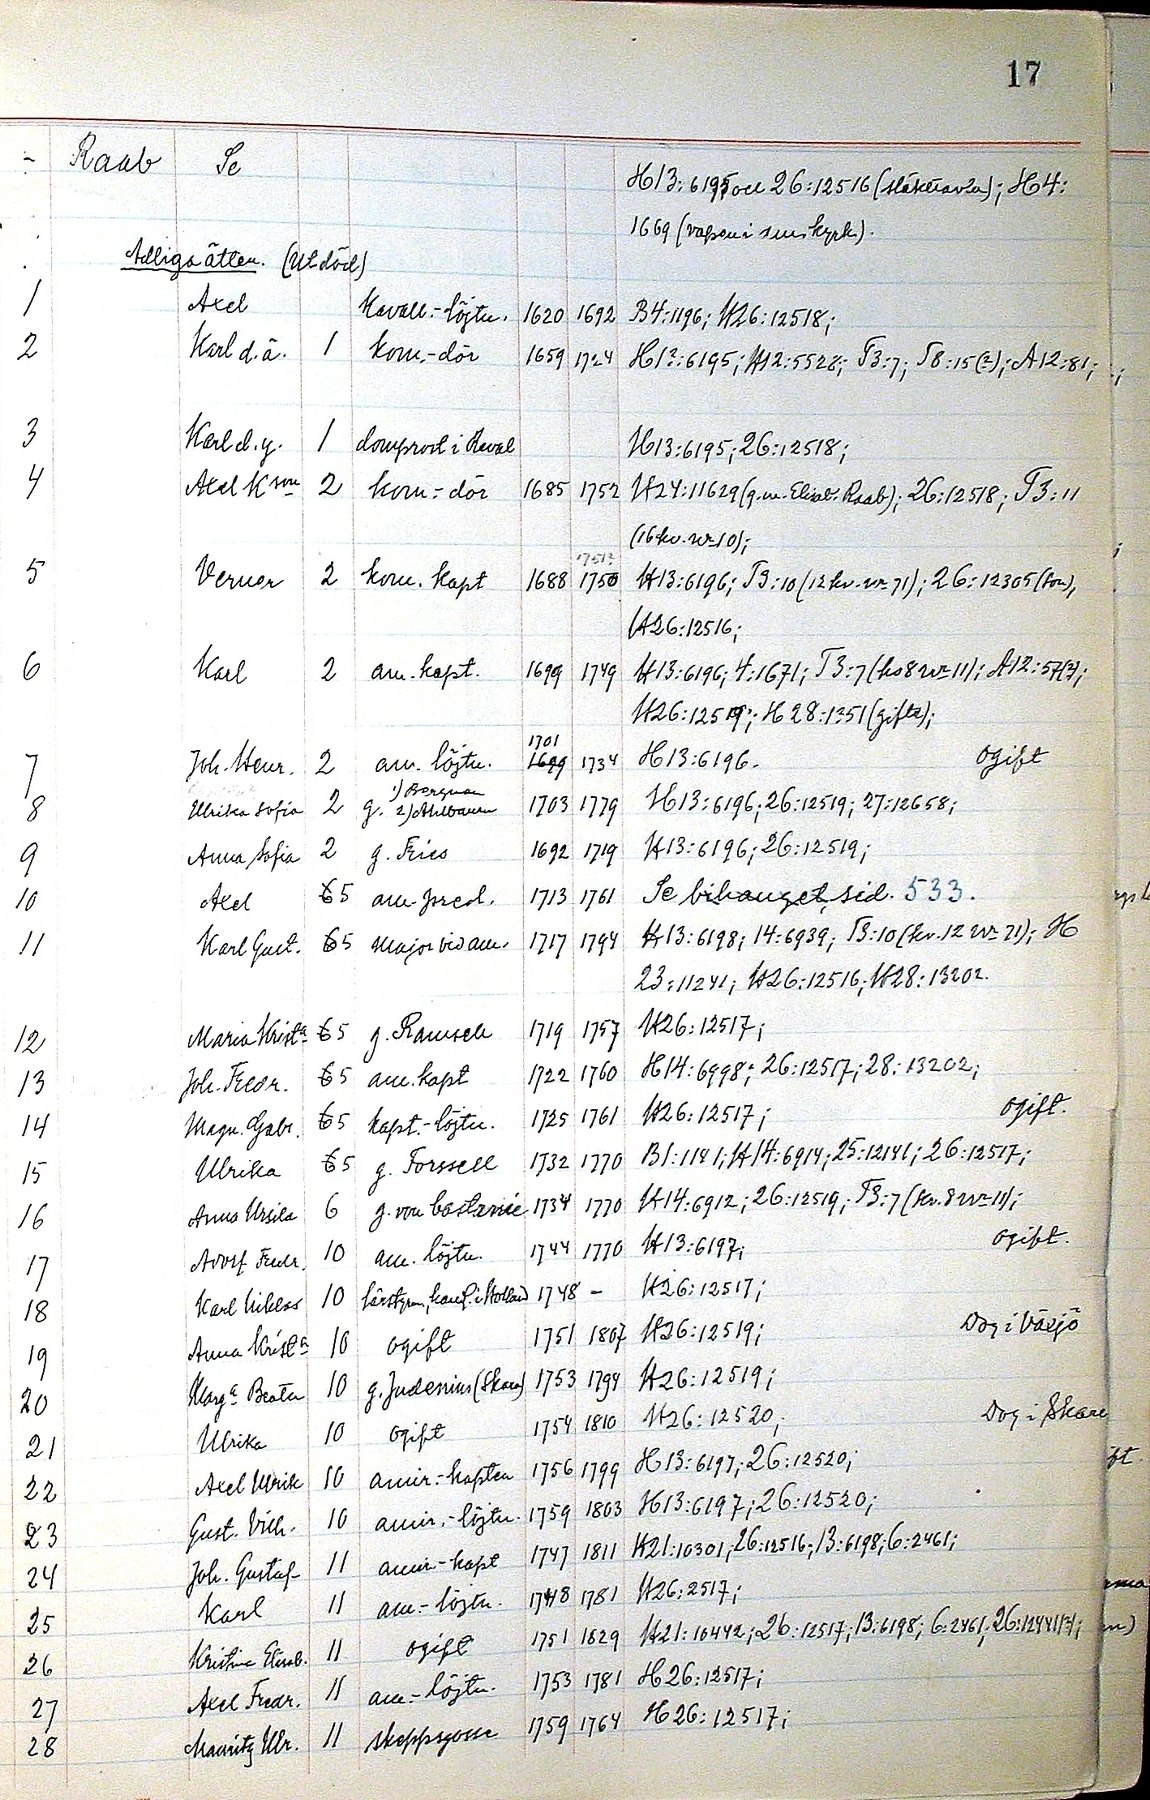 17
Raab Se H13:6195 och 26:12516 (släkttavla); H4:
1669 (vapen i sms kyrk).
Adliga ätten. (Utdöd)
1 Axel Kavall.-löjtn. 1620 1692 B4:1196; H26:12518;
2 Karl d.ä. 1 kom.-dör 1659 1724 H13:6195; H12:5528; T3:7; T8:15(2); A12:81;
3 Karl d.y. 1 domprost i Reval H13:6195; 26:12518;
4 Axel Kson 2 kom.-dör 1685 1752 H24:11629 (g.m. Elisab. Raab); 26:12518; T3:11
(16 kv. nr 10);
1751?
5 Verner 2 kom. kapt 1688 1750 H13:6196; T3:10 (12 kv. nr 71); 26:12305 (son),
H26:12516;
6 Karl 2 am. kapt. 1699 1749 H13:6196; 4:1671; T3:7 (kv 8 nr 11); A12:57(2);
H26:12519; H28:1351 (gifta);
1701
7 Joh. Henr. 2 am. löjtn. 1699 1734 H13:6196. ogift
8 Ulrika Sofia 2 g. 1) Bergman 2) Ahlbaum 1703 1779 H13:6196; 26:12519; 27:12658;
9 Anna Sofia 2 g. Fries 1692 1719 H13:6196; 26:12519;
10 Axel 6 5 am. 1713 1761 Se bihanget, sid. 533.
11 Karl Gust. 6 5 major vid am. 1717 1794 H13:6198; 14:6939; T3:10 (kv. 12 nr 71); H
23:11241; H26:12516; H28:13202.
12 Maria Krista 6 5 g. Ramsell 1719 1757 H26:12517;
13 Joh. Fredr. 6 5 am. kapt 1722 1760 H14:6998; 26:12517; 28:13202;
14 Magn. Gabr. 6 5 kapt.-löjtn. 1725 1761 H26:12517; ogift.
15 Ulrika 6 5 g. Forssell 1732 1770 B1:1141; H14:6914; 25:12141; 26:12517;
16 Anna Ursila 6 g. von 1734 1770 H14:6912; 26:12519; T3:7 (kv. 8 nr 11);
17 Adolf Fredr. 10 am. löjtn. 1744 1770 H13:6197; ogift.
18 Karl Niklas 10 1748 - H26:12517;
19 Anna Krista 10 ogift 1751 1807 H26:12519; Dog i Växjö
20 Marga Beata 10 g. Judenius (Skara) 1753 1794 H26:12519;
21 Ulrika 10 ogift 1754 1810 H26:12520; Dog i Skara
22 Axel Ulrik 10 amir.-kapten 1756 1799 H13:6197; 26:12520;
23 Gust. Vilh. 10 amir.-löjtn. 1759 1803 H13:6197; 26:12520;
24 Joh. Gustaf 11 amir-kapt 1747 1811 H21:10301; 26:12516; 13:6198; 6:2461;
25 Karl 11 am.-löjtn. 1748 1781 H26:2517;
26 Kristina Elisab. 11 ogift 1751 1829 H21:10442; 26:12517; 13:6198; 6:2461; 26:12441(2);
27 Axel Fredr. 11 am-löjtn. 1753 1781 H26:12517;
28 Mauritz Ulr. 11 skeppsgosse 1759 1764 H26:12517;